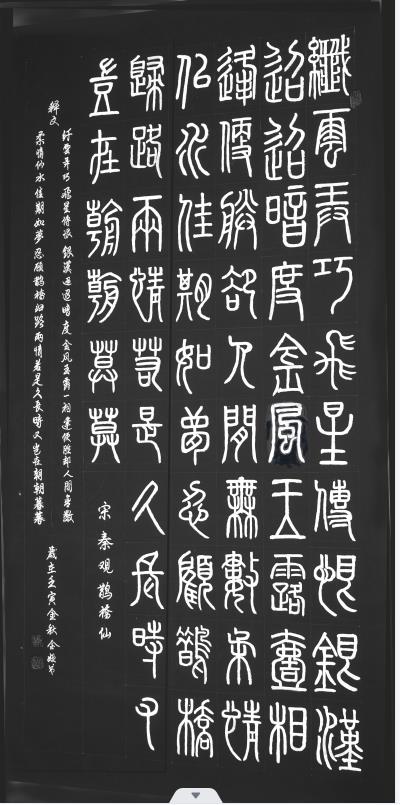 纖雲弄巧飛星傳恨銀漢
迢迢暗度金風玉露壹相
逢便勝卻人間無數柔情
似水佳期如夢忍顧鵲橋
歸路兩情若是久長時又
豈在朝朝暮暮
宋秦观鹊橋仙
釋文
纤雲弄巧飛星傳恨銀漢迢迢暗度金风玉露一相逢便胜却人間無數
柔情似水佳期如夢忍顾鹊橋归路两情若是久長時又岂在朝朝暮暮
歲在壬寅金秋